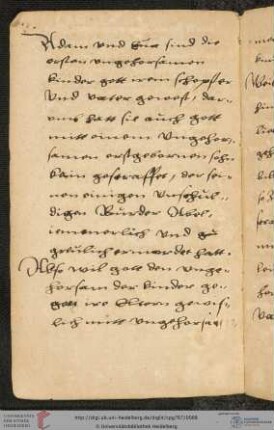 Adam vnd Eua sind die
ersten vngehorsamen
kinder gott irem schopffer
vnd vater gewest, dar-
vmb hatt sie auch gott
mitt einem vngehor-
samen erstgebornen sohn
Kain gestraffet, der sei-
nen einigen vnschul-
digen Bruder Abel
iemmerlich vnd
greulich ermordet hatt.
Also wil gott den vnge-
horsam der kinder ge-
gen ire Eltern gewis-
lich mitt vngehorsam
http://digi.ub.uni-heidelberg.de/diglit/cpg
© Universitätsbibliothek Heidelberg